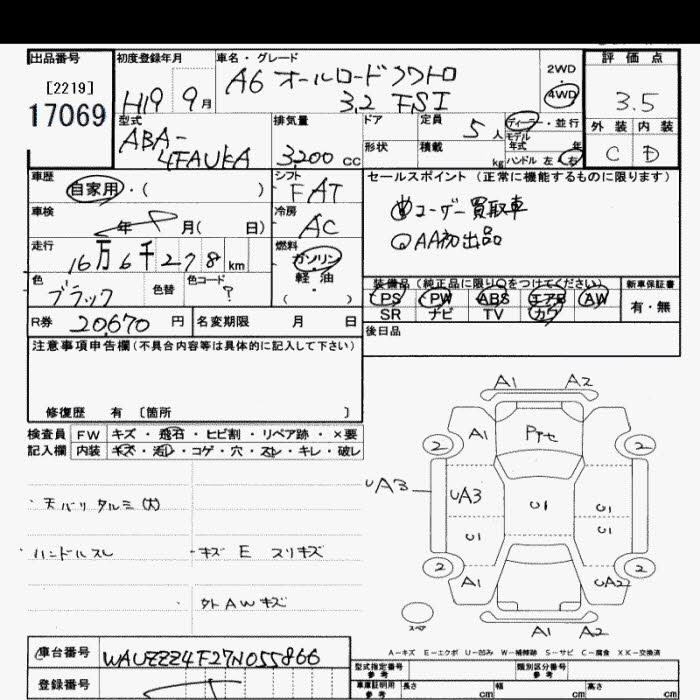 出品番号 初度登録年月 車名・グレード 評価点
[2219] A6 オールロードクワトロ 2WD
17069 H19 9月 3.2 FSI 4WD 3.5
型式 排気量 ドア 定員 5人 ディーラー・並行 外装 内装
ABA-4FAUKA 3,200 cc 形状 積載 kg モデル年式 年 ハンドル 左 右 C D
車歴 シフト セールスポイント (正常に機能するものに限ります)
自家用・( ) FAT ユーザー買取車
車検 年 月( 日) 冷房 AC AA初出品
走行 16万6千278km 燃料 ガソリン
軽・油
( )
色 ブラック 色替 色コード ? 装備品 (純正品に限り○をつけてください) 新車保証書
PS PW ABS エアB AW 有・無
SR ナビ TV カワ
R券 20,670円 名変期限 月 日 後日品
注意事項申告欄(不具合内容等は具体的に記入して下さい)
修復歴 有 〔箇所 〕
検査員 FW キズ・飛石・ヒビ割・リペア跡・×要
記入欄 内装 キズ・汚レ・コゲ・穴・スレ・キレ・破レ
・天バリ タルミ(大)
・ハンドルスレ ・キズ E スリキズ
・外AWキズ
A1 A2
A1
2 2
UA3 UA3 U1 U1
U1 U1
2 2
A1 UA2
スペア A1 A2
A-キズ E-エクボ U-凹み W-補修跡 S-サビ C-腐食 XX-交換済
車台番号 WAUZZZ4F27N055866 型式指定番号 参考 類別区分番号 参考
登録番号 車庫証明用 参考 長さ cm 幅 cm 高さ cm